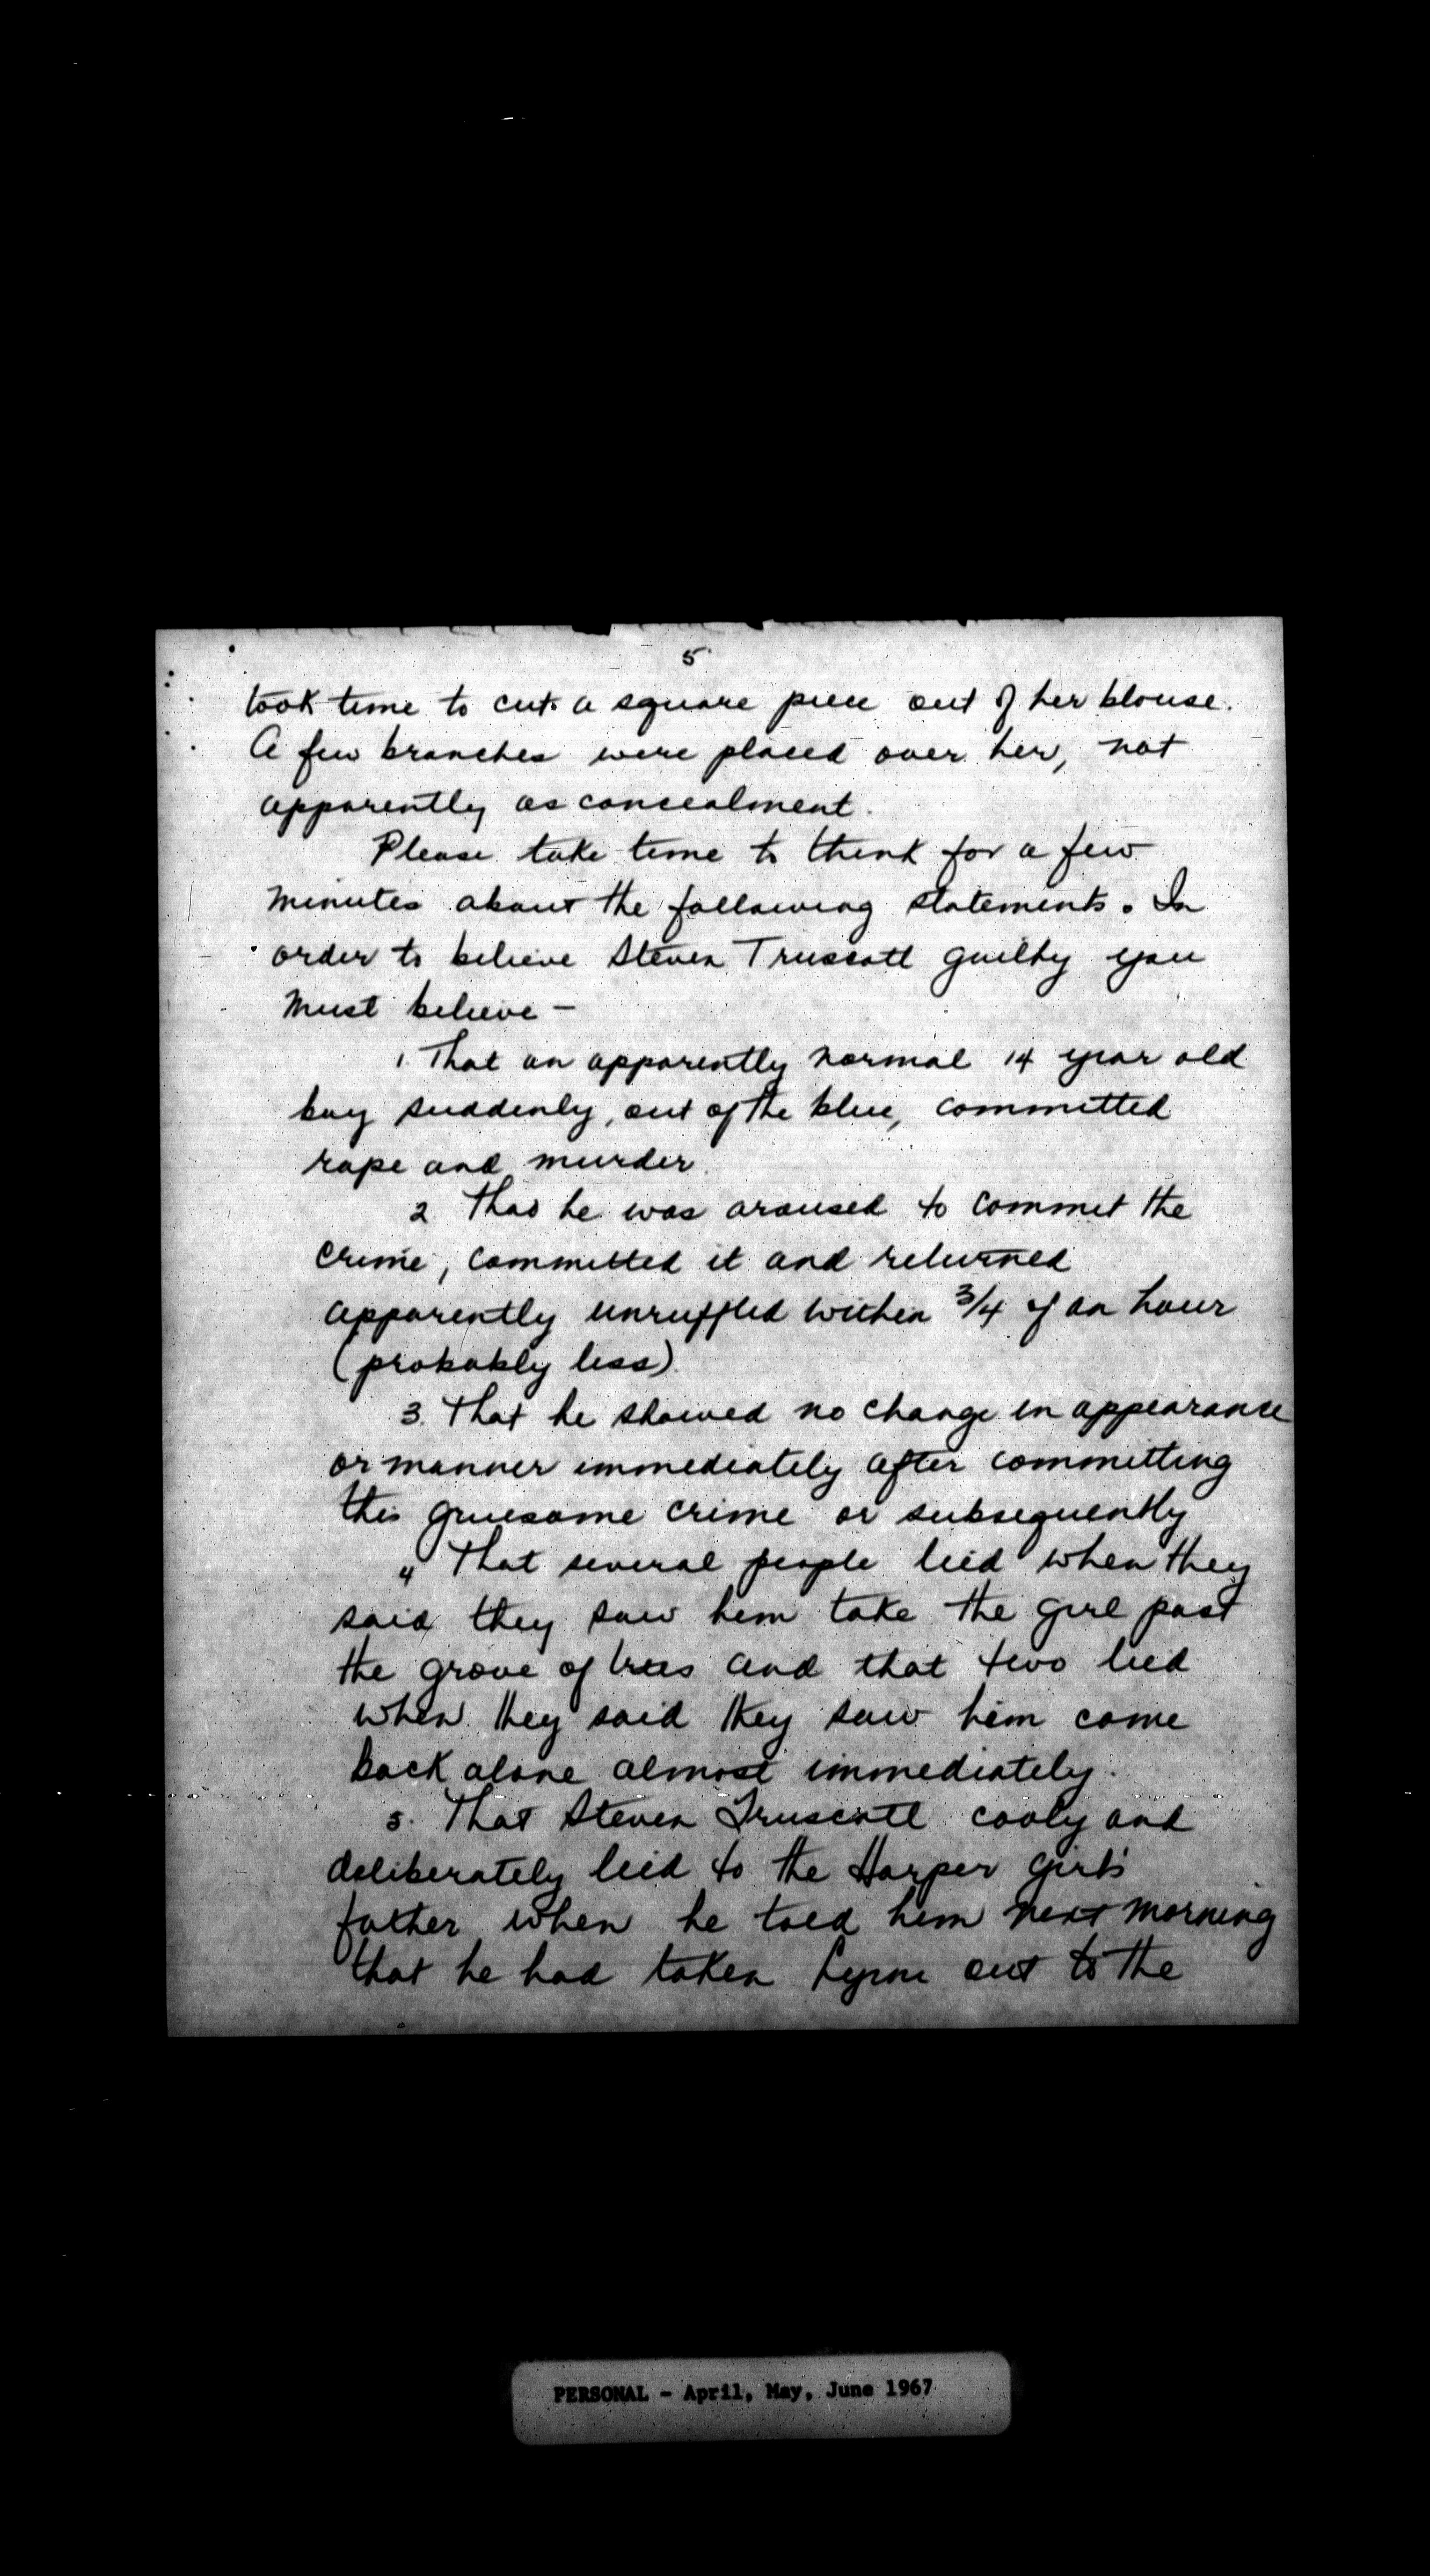 5
took time to cut a square piece out of her blouse.
A few branches were placed over her, not
apparently as concealment.
Please take time to think for a few
minutes about the following statements. In
order to believe Steven Truscott guilty you
must believe -
1. That an apparently normal 14 year old
boy suddenly, out of the blue, committed
rape and murder.
2. That he was aroused to commit the
crime, committed it and returned
apparently unruffled within 3/4 of an hour
(probably less).
3. That he showed no change in appearance
or manner immediately after committing
this gruesome crime or subsequently
4 That several people lied when they
said they saw him take the girl past
the grove of trees and that two lied
when they said they saw him come
back alone almost immediately.
5. That Steven Truscott cooly and
deliberately lied to the Harper girl's
father when he told him next morning
that he had taken Lynne out to the
PERSONAL - April, May, June 1967